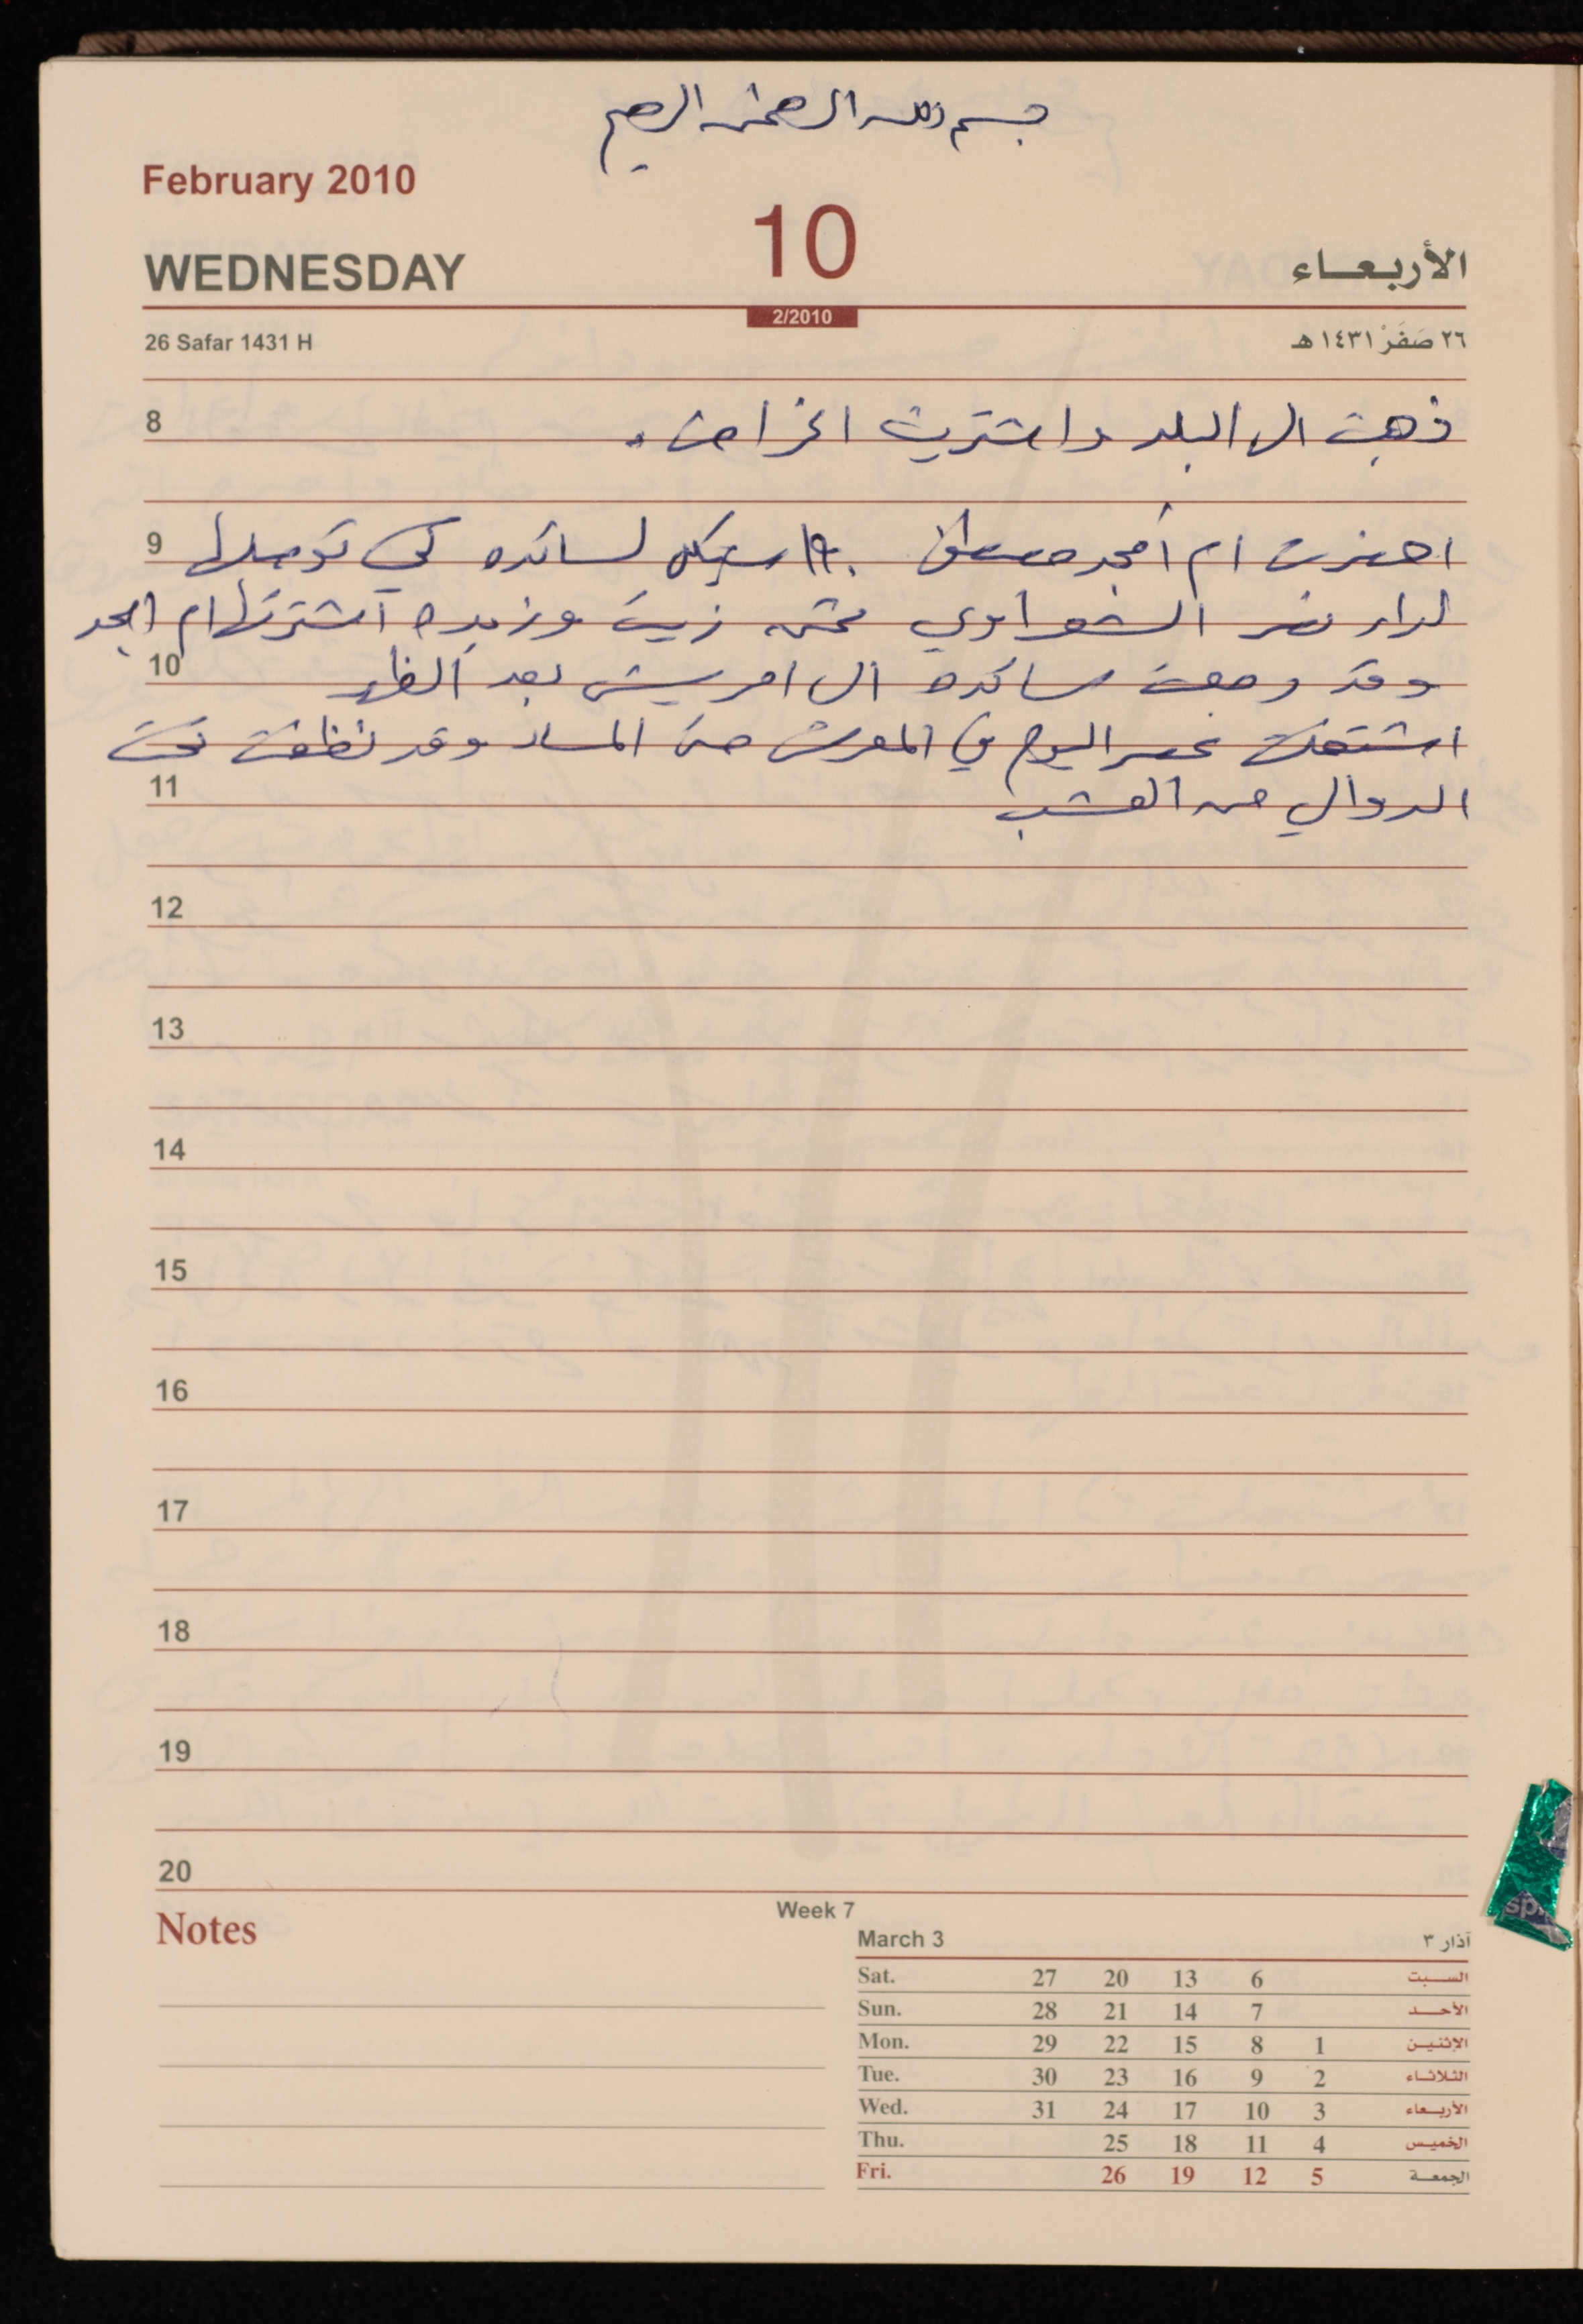 بسم الله الرحمن الرحيم
February 2010
10
WEDNESDAY
الأربعاء
2/2010
26 Safar 1431 H
٢٦ صَفَرْ ١٤٣١ هـ
8
ذهبت الى البلد واشتريت اغراض.
9
احضرت ام أمجد مصطفى شيكل لسائده كي توصلها
لدار نصر الشعراوي ثمن زيت وزبده اشترتها ام امجد
10
وقد رجعت سائده الى امريش بعد الظهر
اشتغلت عصر اليوم في المعرش حتى المساء وقد نظفت تحت
11
الدوالي من العشب
12
13
14
15
16
17
18
19
20
Notes
Week 7
March 3
آذار ٣
Sat. 27 20 13 6 السـبت
Sun. 28 21 14 7 الأحـد
Mon. 29 22 15 8 1 الإثنيـن
Tue. 30 23 16 9 2 الثلاثـاء
Wed. 31 24 17 10 3 الأربـعاء
Thu. 25 18 11 4 الخميـس
Fri. 26 19 12 5 الجمعـة